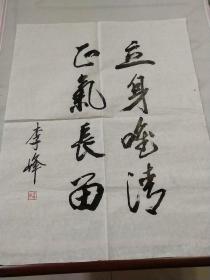 立身唯清
正氣長留
李峰